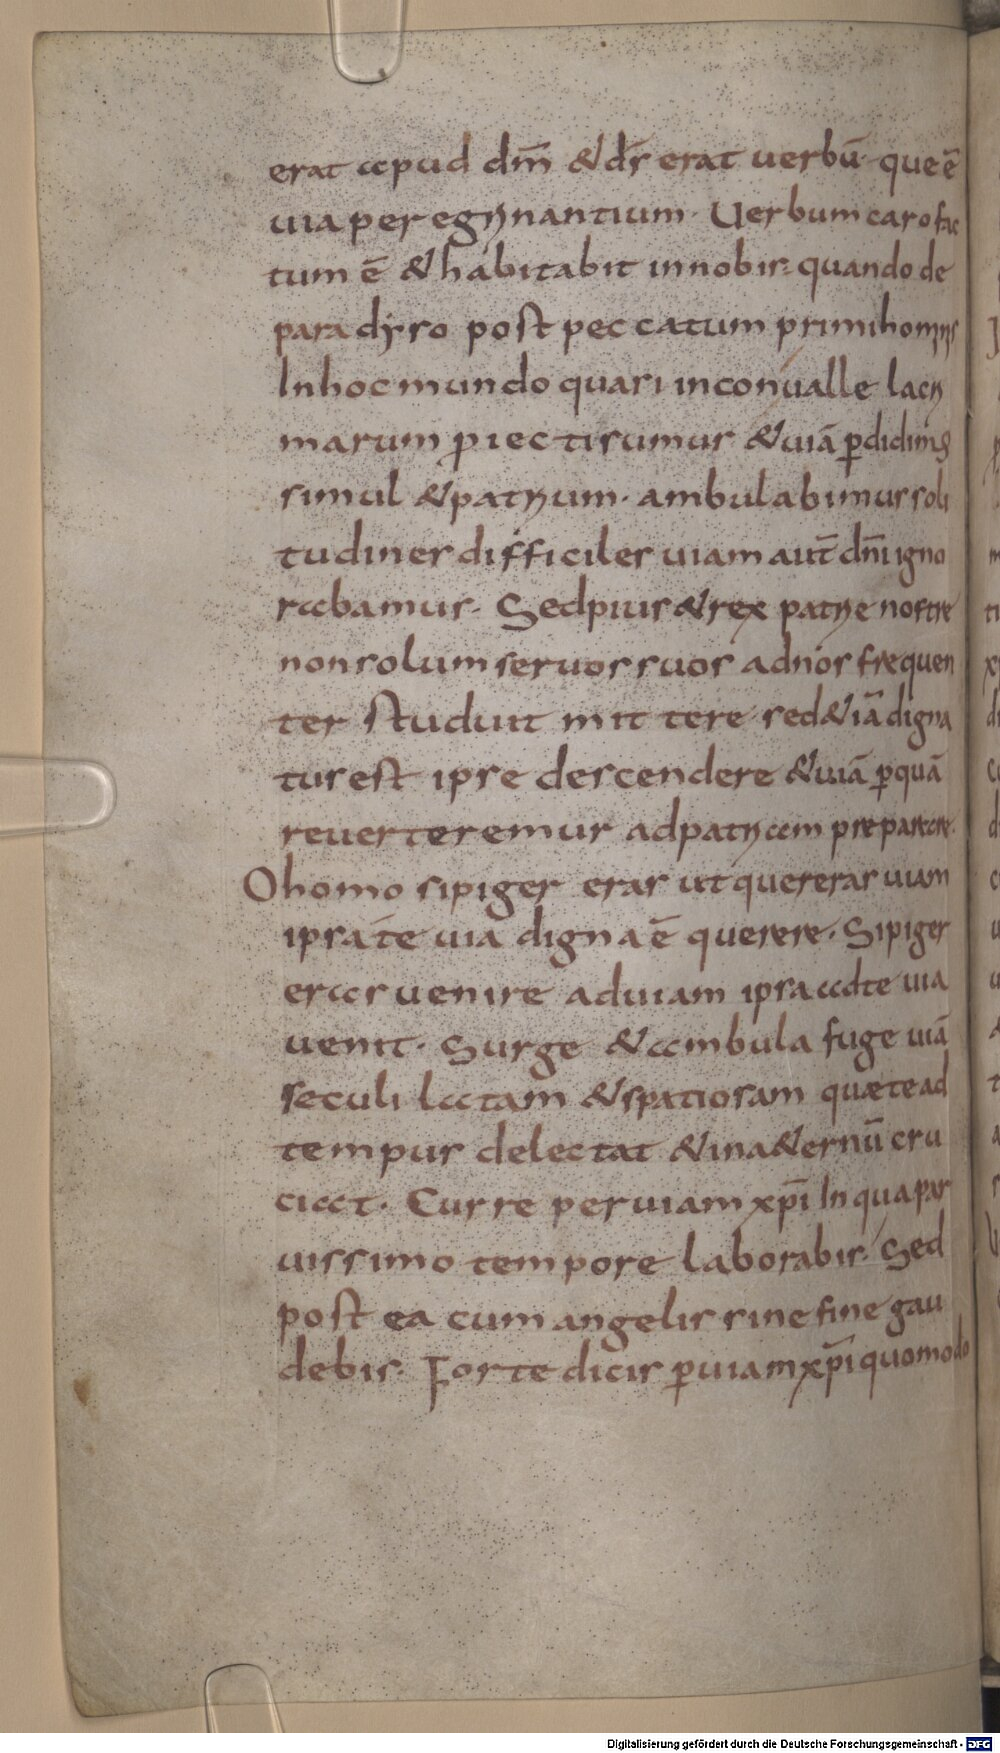 erat apud dm̄ & ds̄ erat uerbū· que ē
uia peregrinantium· Uerbum caro fac
tum ē & habitabit in nobis· quando de
paradyso post peccatum primi hominis
In hoc mundo quasi in conualle lacri
marum proiecti sumus & uiā ꝑdidimus
simul & patrium· ambulabimus soli
tudines difficiles uiam aut̄ dn̄i igno
rabamus· Sed pius & rex patrie nostre
non solum seruos suos ad nos frequen
ter studuit mittere sed & iā digna
tus est ipse descendere & uiā ꝑ quā
reuerteremur ad patriam preparare·
O homo si piger eras ut quereras uiam
ipsa te uia digna ē querere· Si piger
eras uenire ad uiam ipsa ad te uia
uenit· Surge & ambula fuge uiā
seculi latam & spatiosam quæ te ad
tempus delectat & in a&ernū cru
ciat· Curre per uiam xp̄i In qua par
uissimo tempore laborabis· Sed
post ea cum angelis sine fine gau
debis· Forte dicis ꝑ uiam xp̄i quomodo
Digitalisierung gefördert durch die Deutsche Forschungsgemeinschaft - DFG